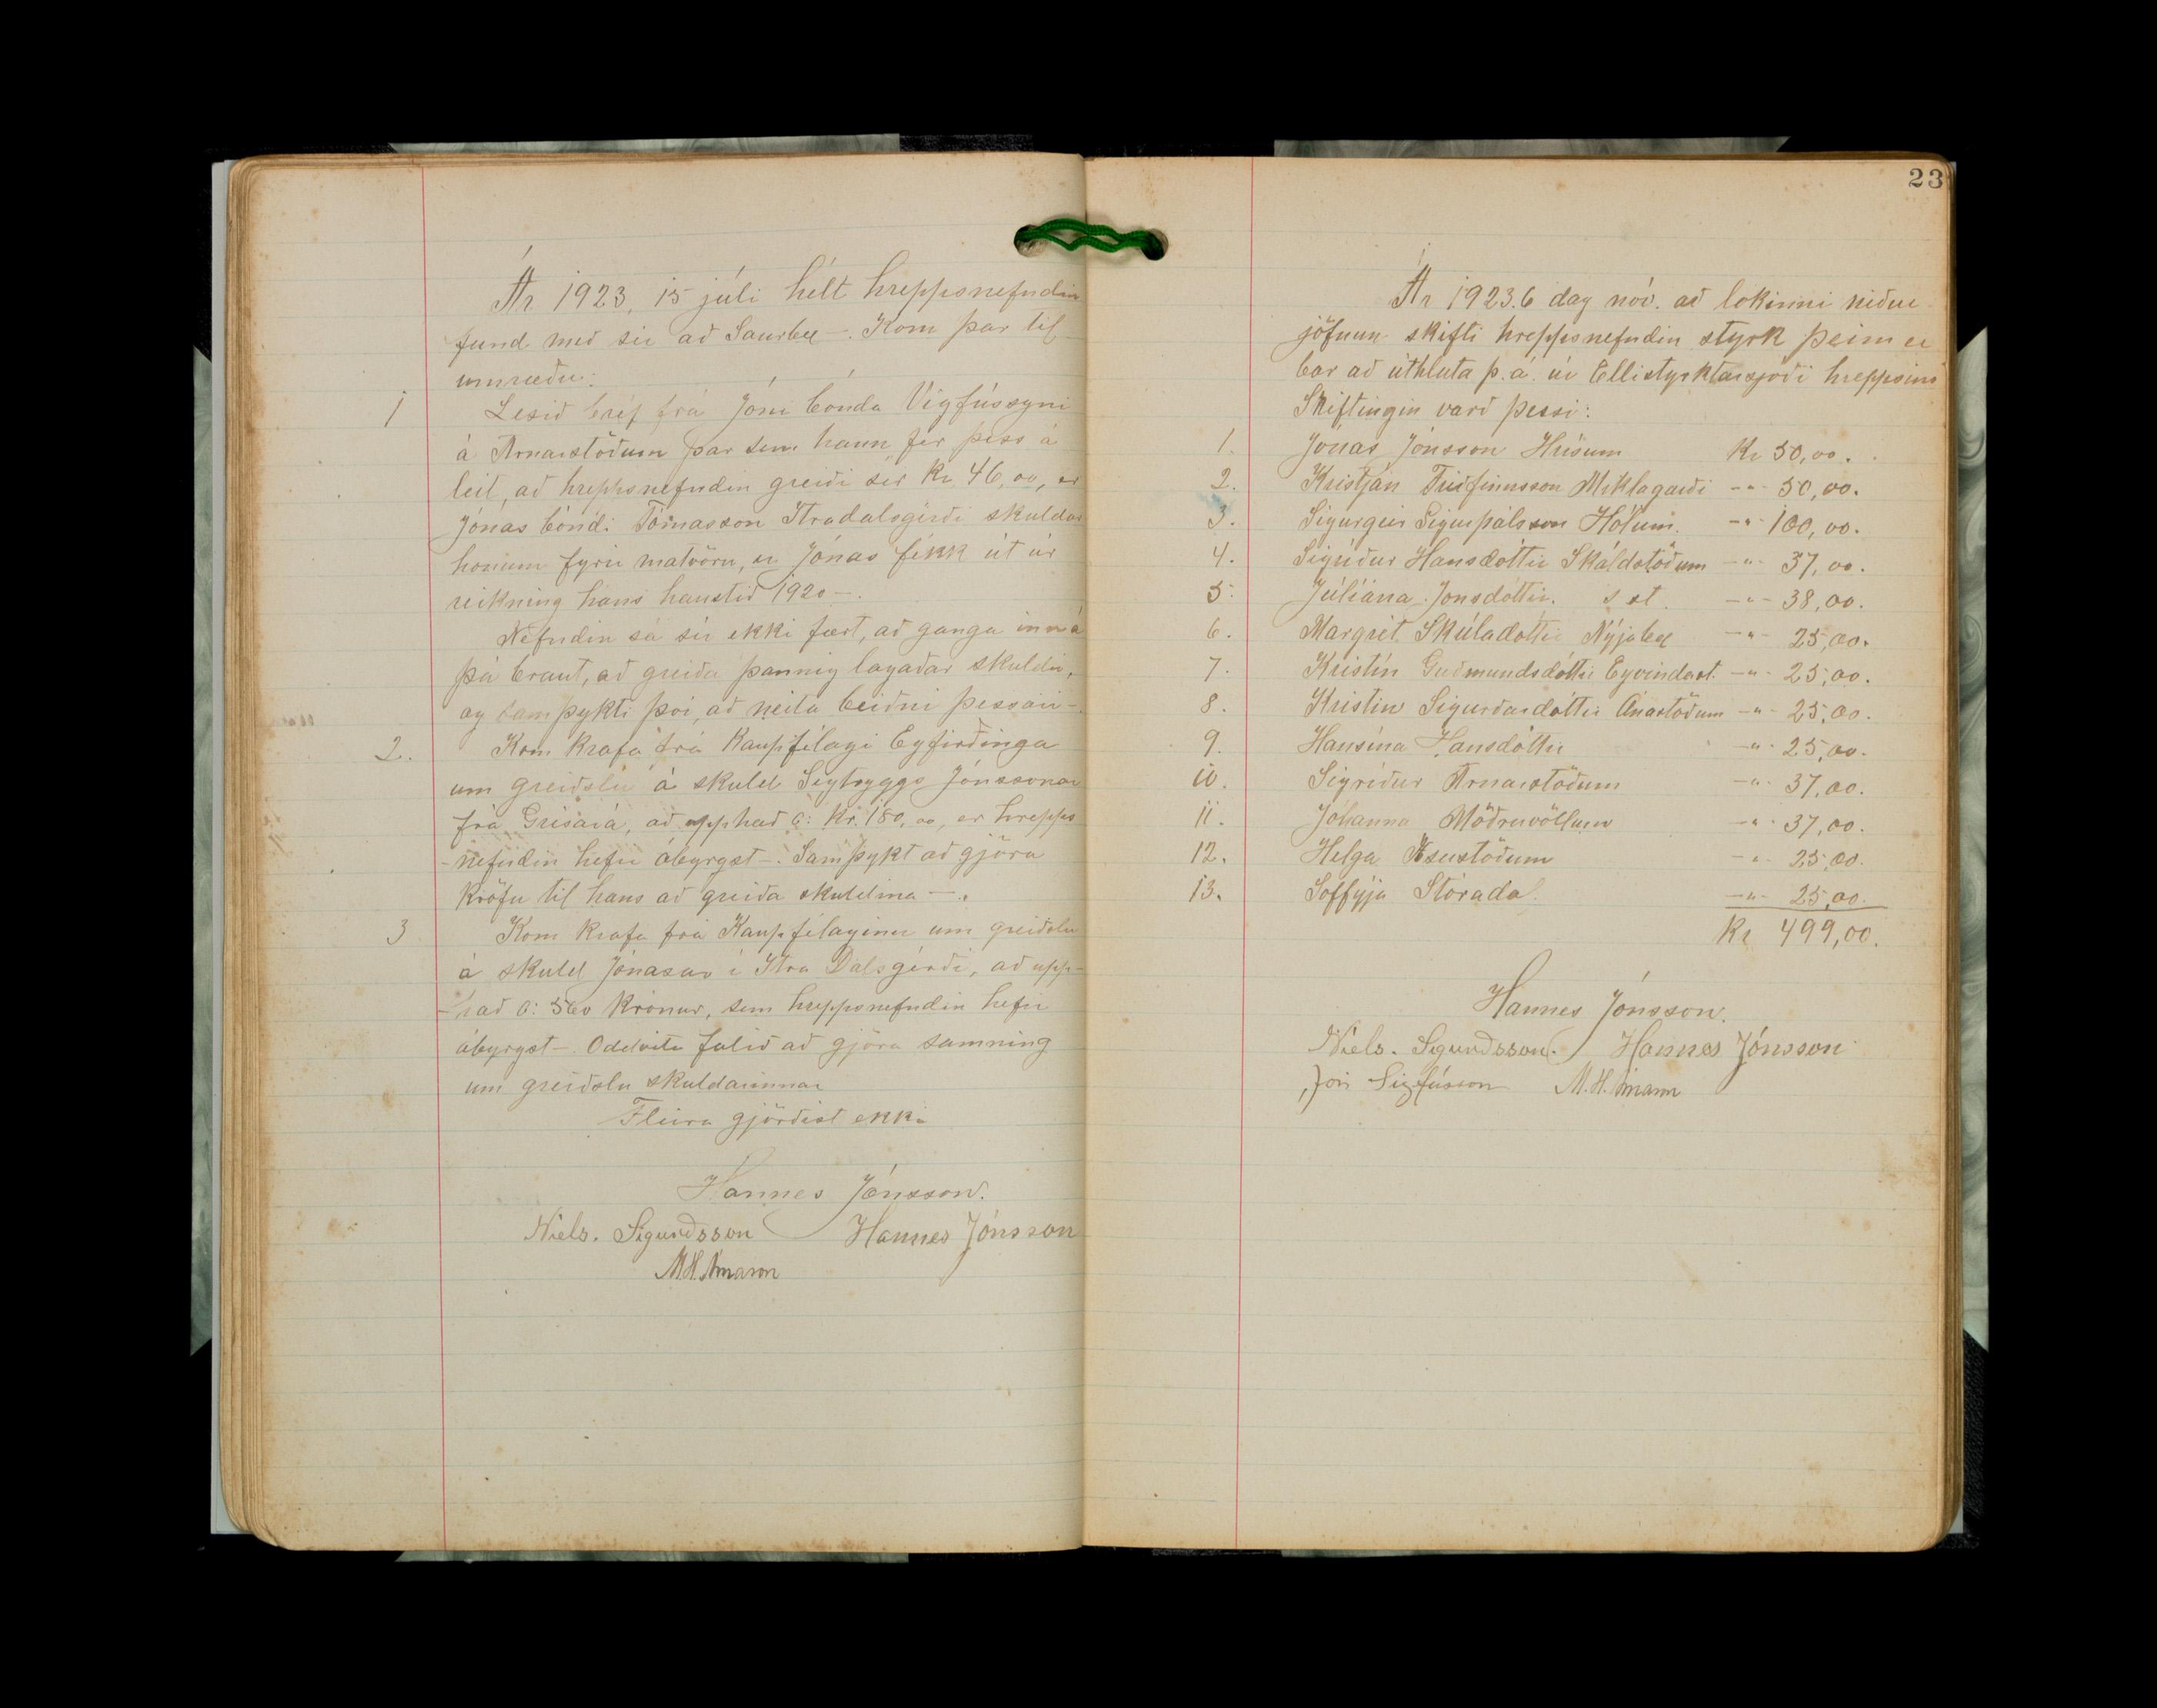 Ár 1923, 15 júli hélt hreppsnefndin
fund með sér að Saurbæ –. Kom þar til
umræðu:
1 Lesið bréf frá Jóni bónda Vigfússyni
á Arnarstöðum þar sem hann fer þess á
leit, að hreppsnefndin greiði sér Kr 46,00, er
Jónas bóndi Tómasson Ytradalsgerði skuldar
honum fyrir matvöru, er Jónas fékk út úr
reikning hans haustið 1920 –.
Nefndin sá sér ekki fært, að ganga inn á
þá braut, að greiða þannig lagaðar skuldir,
og samþykti því, að neita beiðni þessari –.
2. Kom krafa frá Kaupfélagi Eyfirðinga
um greiðslu á skuld Sigtryggs Jónssonar
frá Grísará, að upphæð c: Kr. 180,00, er hrepps
-nefndin hefir ábyrgst –. Samþykt að gjöra
kröfu til hans að greiða skuldina –.
3 Kom krafa frá Kaupfélaginu um greiðslu
á skuld Jónasar í Ytra Dalsgerði, að upp-
-hæð c: 560 krónur, sem hreppsnefndin hefir
ábyrgst –. Oddvita falið að gjöra samning
um greiðslu skuldarinnar
Fleira gjörðist ekki
Hannes Jónsson.
Niels. Sigurðsson Hannes Jónsson
M.H. Árnason
23
Ár 1923. 6 dag nóv. að lokinni niður
jöfnun skifti hreppsnefndin styrk þeim er
bar að úthluta þ.á. úr Ellistyrktarsjóði hreppsins
Skiftingin varð þessi:
1. Jónas Jónsson Húsum Kr 50,00.
2. Kristján Friðfinnsson Miklagarði –"– 50,00.
3. Sigurgeir Sigurpálsson Hólum. –"– 100,00.
4. Sigríður Hansdóttir Skáldstöðum –"– 37,00.
5. Júlíana Jónsdóttir. s st. –"– 38,00.
6. Margrét Skúladóttir Nýjabæ –"– 25,00.
7. Kristín Guðmundsdóttir Eyvindarst. –"– 25,00.
8. Kristín Sigurðardóttir Ánastöðum –"– 25,00.
9. Hansína Hansdóttir –"– 25,00.
10. Sigríður Arnarstöðum –"– 37,00.
11. Jóhanna Möðruvöllum –"– 37,00.
12. Helga Æsustöðum –"– 25,00.
13. Soffyja Stóradal –"– 25,00.
Kr 499,00.
Hannes Jónsson.
Niels. Sigurðsson. Hannes Jónsson
Jón Sigfússon M.H. Árnason